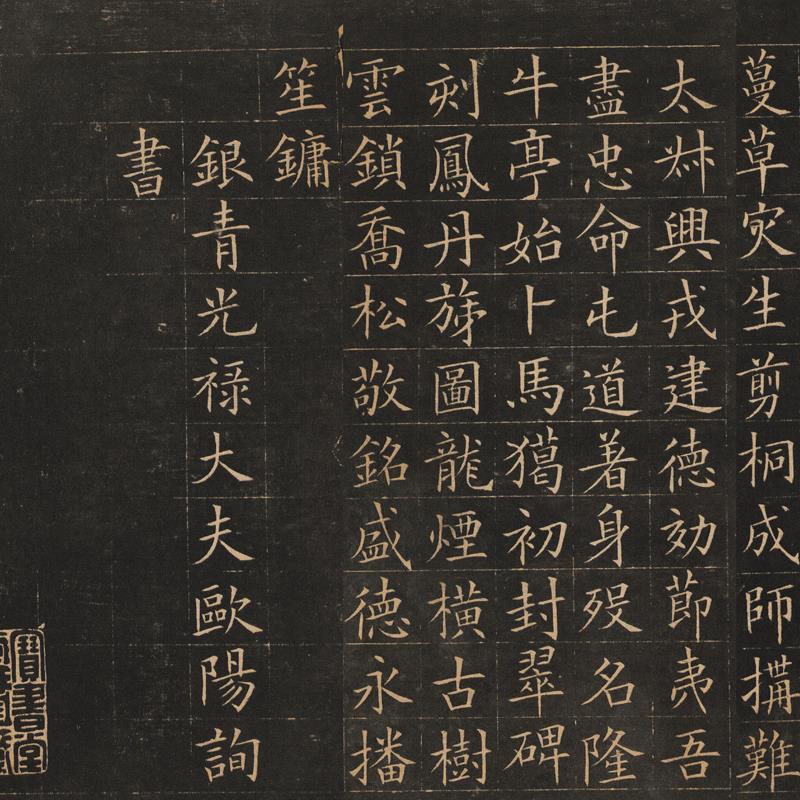 蔓草灾生剪桐成師搆難
太叔興戎建德効節夷吾
盡忠命屯道著身歿名隆
牛亭始卜馬獦初封翠碑
刻鳳丹旐圖龍煙橫古樹
雲鎖喬松敬銘盛德永播
笙鏞
銀青光祿大夫歐陽詢
書